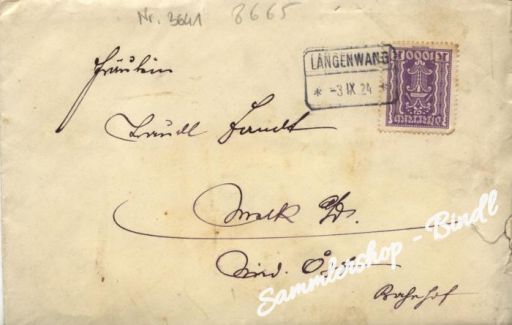 Nr. 3641 8665
LANGENWANG
* -3 IX 24 *
1000
Fräulein
Melk a/D.
Nied. Öst.
Bahnhof
Sammlershop - Bindl